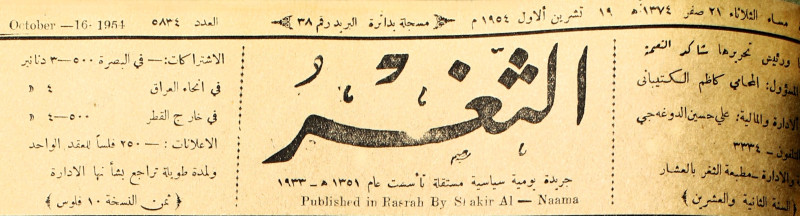 مساء الثلاثاء ٢١ صفر ١٣٧٤ هـ ١٩ تشرين الأول ١٩٥٤ م ﴿ مسجلة بدائرة البريد رقم ٣٨ ﴾ العدد ٥٨٣٤ October —16- 1954
ورئيس تحريرها شاكر النعمة
المسؤول: المحامي كاظم الكتيباني
الادارة والمالية: علي حسين الدوغه جي
٣٣٣٤
والادارة — مطبعة الثغر بالعشار
﴿ السنة الثانية والعشرين ﴾
الثغر
جريدة يومية سياسية مستقلة تأسست عام ١٣٥١ هـ — ١٩٣٣
Published in Rasrah By Shakir Al — Naama
الاشتراكات :— في البصرة ٥٠٠—٣ دنانير
في انحاء العراق ٤ »
في خارج القطر ٥٠٠—٤ »
الاعلانات :— ٢٥٠ فلساً للعقد الواحد
ولمدة طويلة تراجع بشأنها الادارة
﴿ ثمن النسخة ١٠ فلوس ﴾